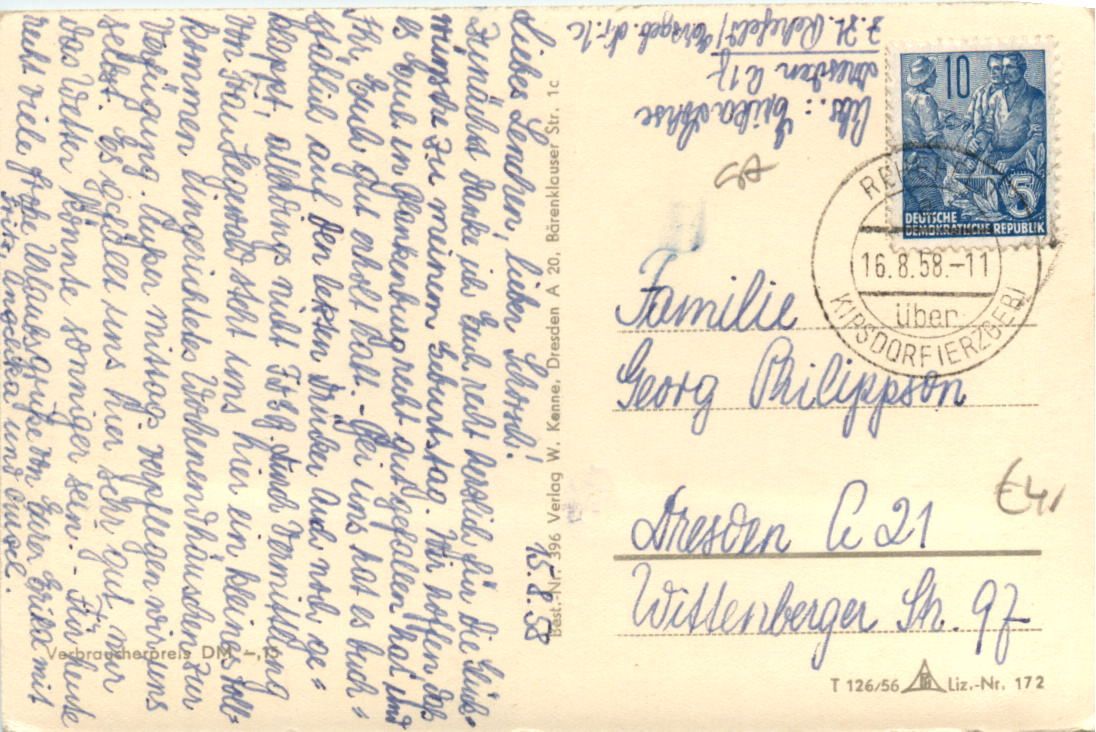 15.8.58
Liebes Lenchen, lieber Schorsch!
Zunächst danke ich Euch recht herzlich für die Glück-
wünsche zu meinem Geburtstag. Wir hoffen, daß
es Euch in Blankenburg recht gut gefallen hat und
Ihr Euch gut erholt habt. - Bei uns hat es buch-
stäblich auf den letzten Drücker auch noch ge=
klappt, allerdings nicht FDGB. Durch Vermittlung
von Frau steht uns hier ein kleines voll-
kommen eingerichtetes Wochenendhäuschen zur
Verfügung. Außer mittags verpflegen wir uns
selbst. Es gefällt uns hier sehr gut, nur
das Wetter könnte sonniger sein. - Für heute
recht viele frohe Urlaubsgrüße von Eurer Erika mit
Fritz, Angelika und
Verbraucherpreis DM -,15
Best.-Nr. 396 Verlag W. Kenne, Dresden A 20, Bärenklauser Str. 1c
Abs.: Erika Lohse
Dresden A 17
z. Zt. Rehefeld/Erzgeb. Nr. 1c
10
5
DEUTSCHE
DEMOKRATISCHE REPUBLIK
16.8.58.-11
über
KIPSDORF (ERZGEB)
Familie
Georg Philippson
Dresden A 21
Wittenberger Str. 97
€4,
T 126/56 Liz.-Nr. 172